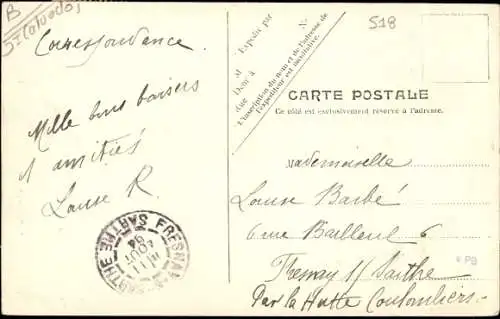 B
Correspondance
Mille bons baisers
& amitiés
Louise R.
FRESNAY SARTHE
AOUT
04
Nº
Expédié par
M
Dem t à
rue
L'inscription du nom et de l'adresse de
l'expéditeur est facultative.
518
CARTE POSTALE
Ce côté est exclusivement réservé à l'adresse.
Mademoiselle
Louise Barbé
6 rue Bailleul 6
Fresnay s/ Sarthe
Par la Hutte Coulombiers
PB